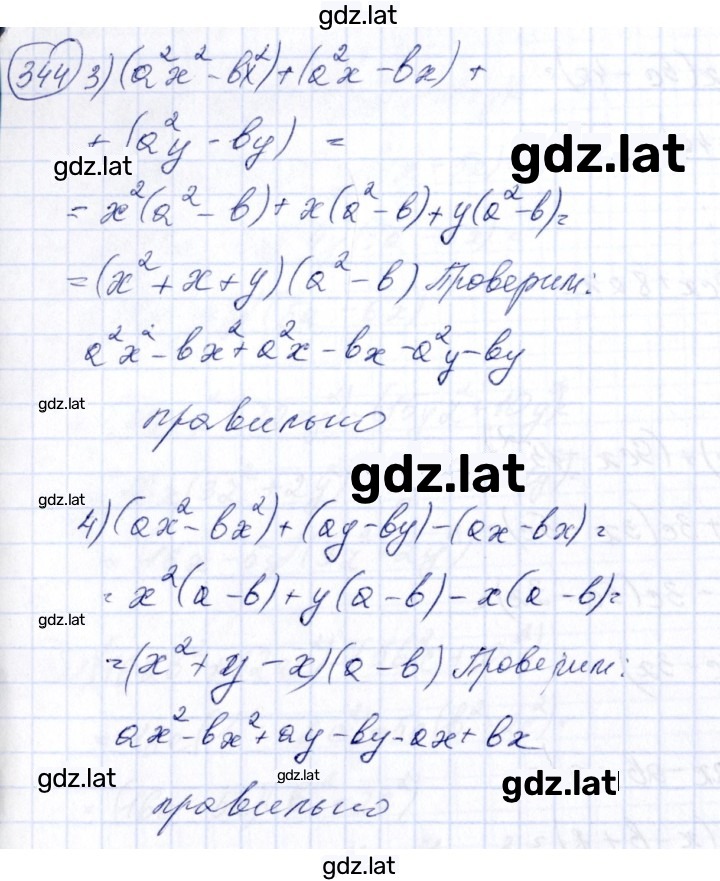 gdz.lat
344 3) (a²x² - bx²) + (a²x - bx) +
+ (a²y - by) =
gdz.lat
gdz.lat
= x²(a² - b) + x(a² - b) + y(a² - b) =
= (x² + x + y)(a² - b) Проверим:
a²x² - bx² + a²x - bx - a²y - by
gdz.lat
правильно
gdz.lat
gdz.lat
4) (ax² - bx²) + (ay - by) - (ax - bx) =
= x²(a - b) + y(a - b) - x(a - b) =
gdz.lat
= (x² + y - x)(a - b) Проверим:
ax² - bx² + ay - by - ax + bx
gdz.lat gdz.lat gdz.lat
правильно
gdz.lat